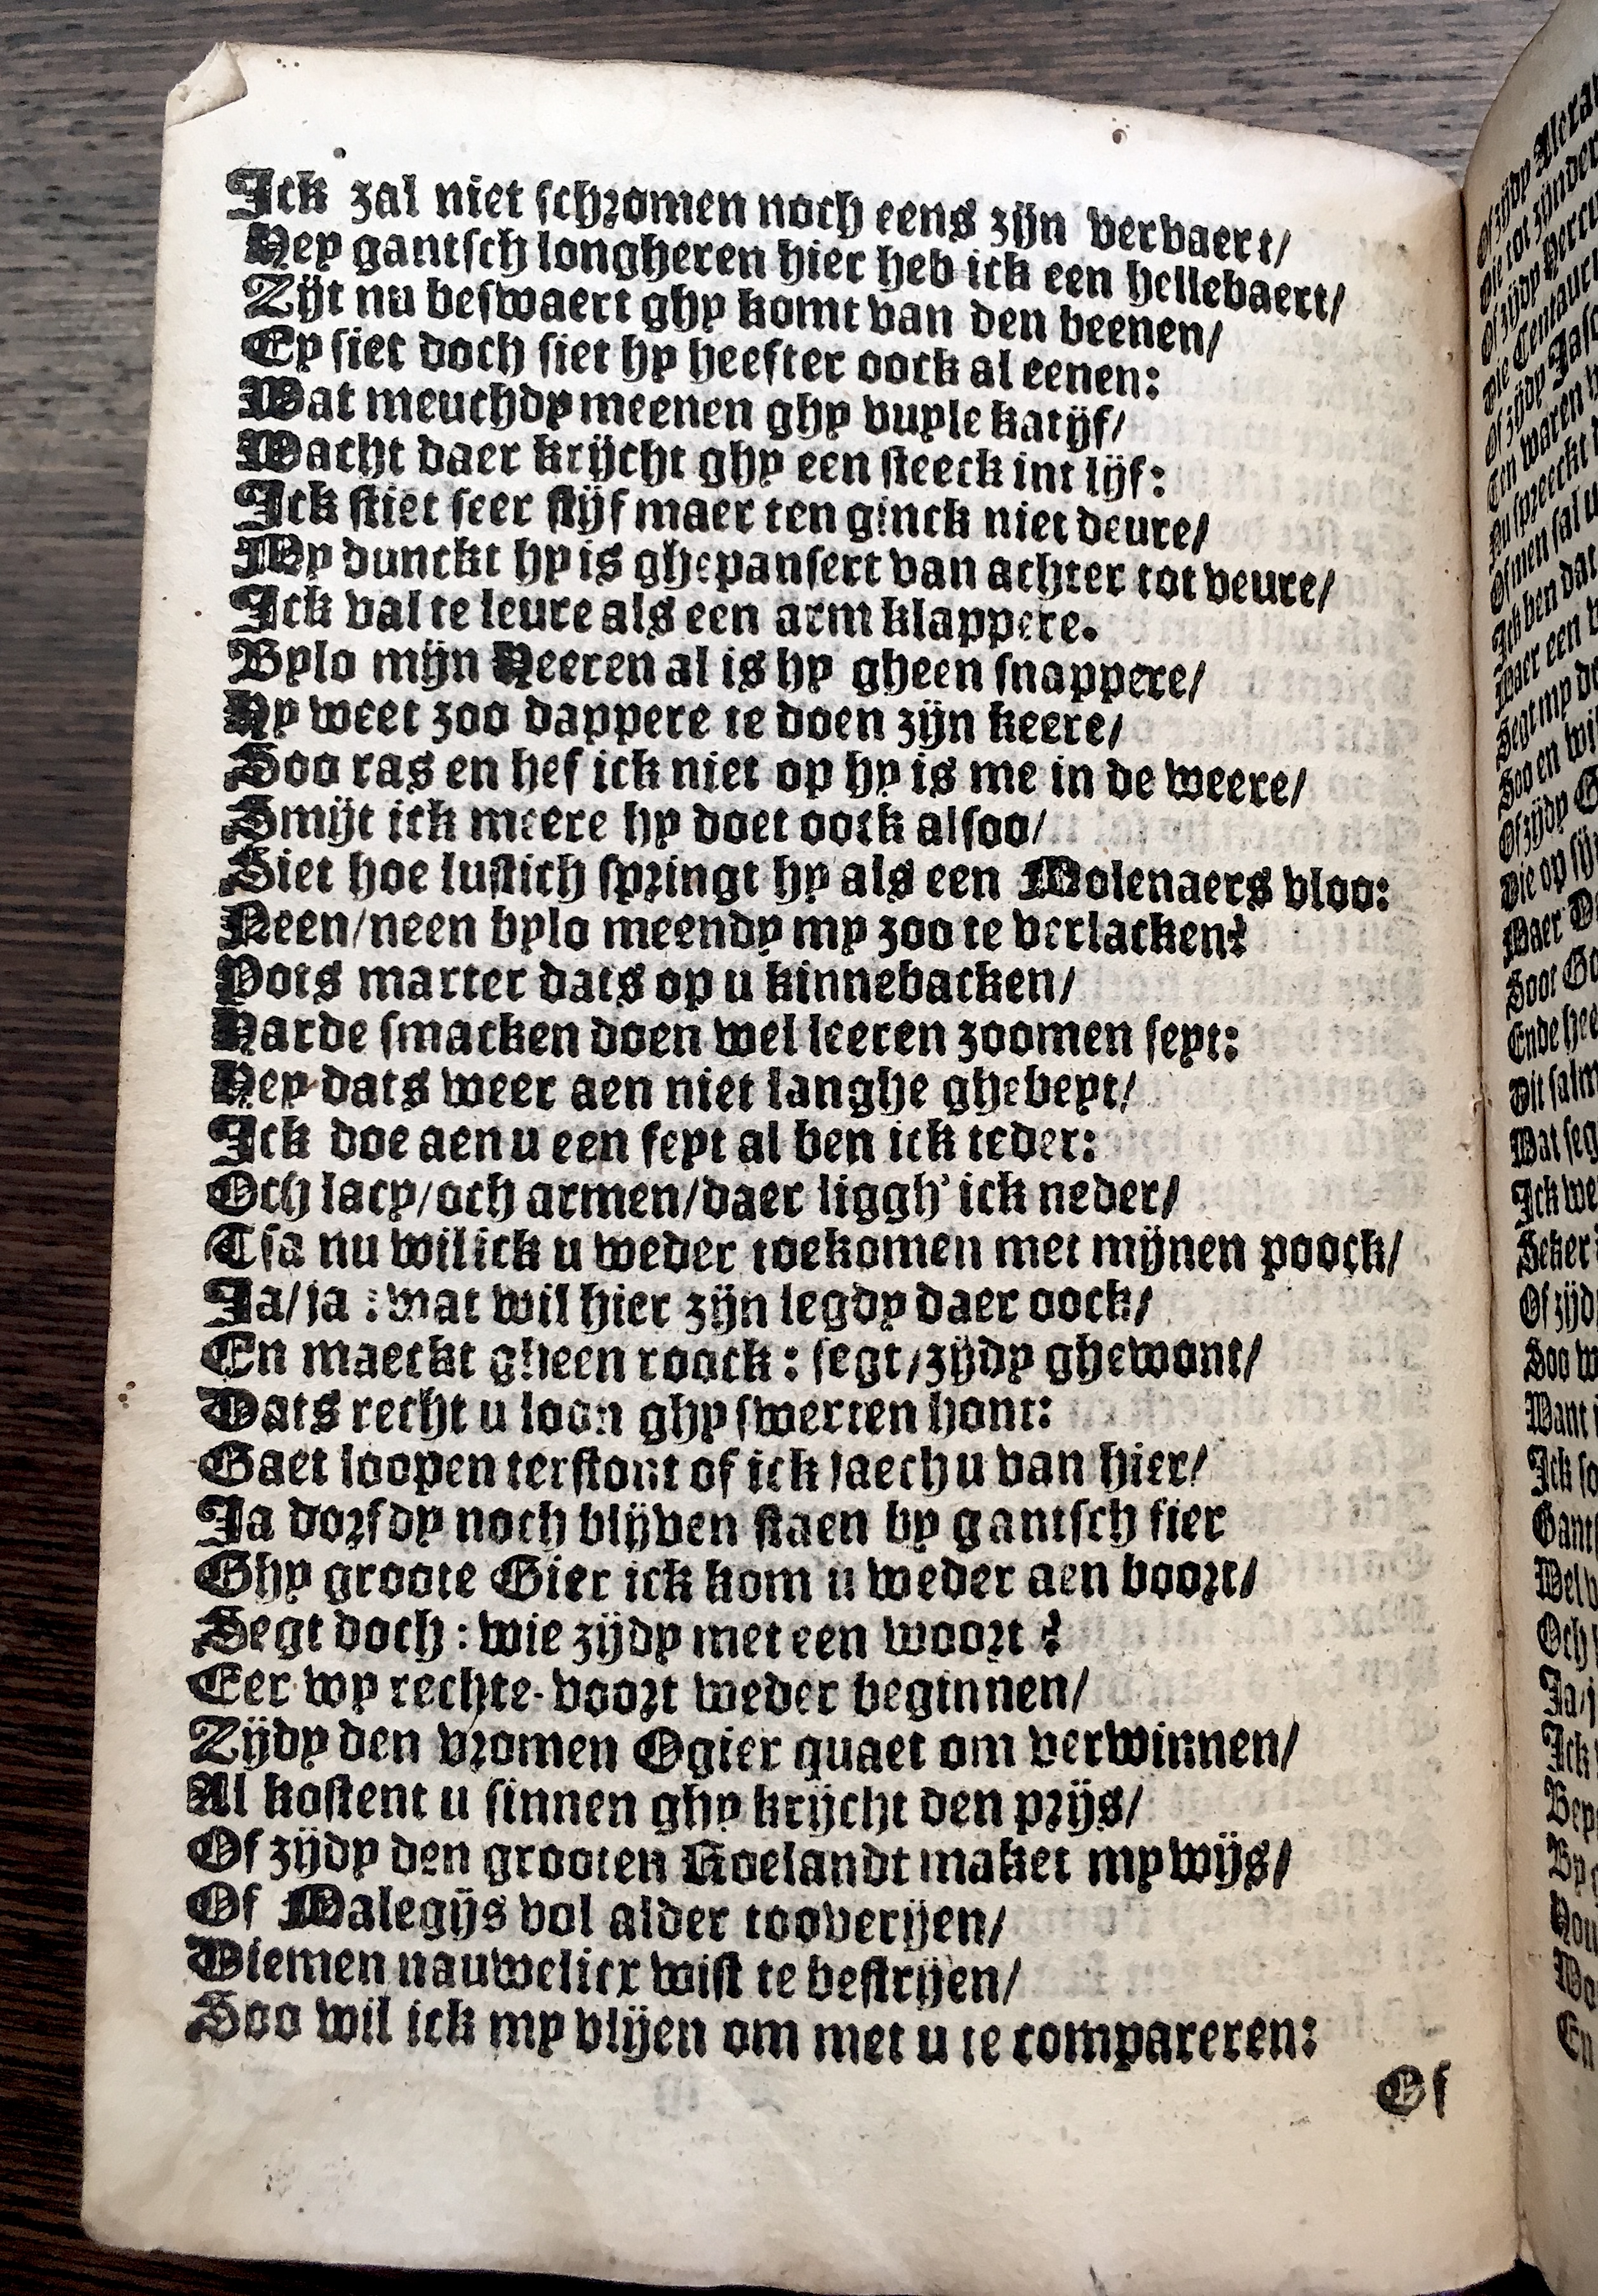 Ick zal niet schromen noch eens zijn vervaert/
Hey gantsch longheren hier heb ick een hellebaert/
Zijt nu beswaert ghy komt van den beenen/
Ey siet doch siet hy heefter oock al eenen:
Wat meuchdy meenen ghy vuyle katijf/
Wacht daer krijcht ghy een steeck int lijf:
Ick stiet seer stijf maer ten ginck niet deure/
My dunckt hy is ghepansert van achter tot veure/
Ick val te leure als een arm klappere.
Bylo mijn Heeren al is hy gheen snappere/
Hy weet zoo dappere te doen zijn keere/
Soo ras en hef ick niet op hy is me in de weere/
Smijt ick meere hy doet oock alsoo/
Siet hoe lustich springt hy als een Molenaers vloo:
Neen/neen bylo meendy my zoo te verlacken?
Pots marter dats op u kinnebacken/
Harde smacken doen wel leeren zoomen seyt:
Hey dats weer aen niet langhe ghebeyt/
Ick doe aen u een feyt al ben ick teder:
Och lacy/och armen/daer liggh' ick neder/
Tsa nu wil ick u weder toekomen met mijnen poock/
Ja/ja : wat wil hier zijn legdy daer oock/
En maeckt gheen roock : segt/zijdy ghewont/
Dats recht u loon ghy swerten hont:
Gaet loopen terstont of ick jaech u van hier/
Ja dorfdy noch blijven staen by gantsch fier
Ghy groote Gier ick kom u weder aen boort/
Segt doch : wie zijdy met een woort ?
Eer wy rechte-voort weder beginnen/
Zijdy den vromen Ogier quaet om verwinnen/
Al kostent u sinnen ghy krijcht den prijs/
Of zijdy den grooten Roelandt maket my wijs/
Of Malegijs vol alder tooverijen/
Diemen nauwelicx wist te bestrijen/
Soo wil ick my vlijen om met u te compareren:
Of